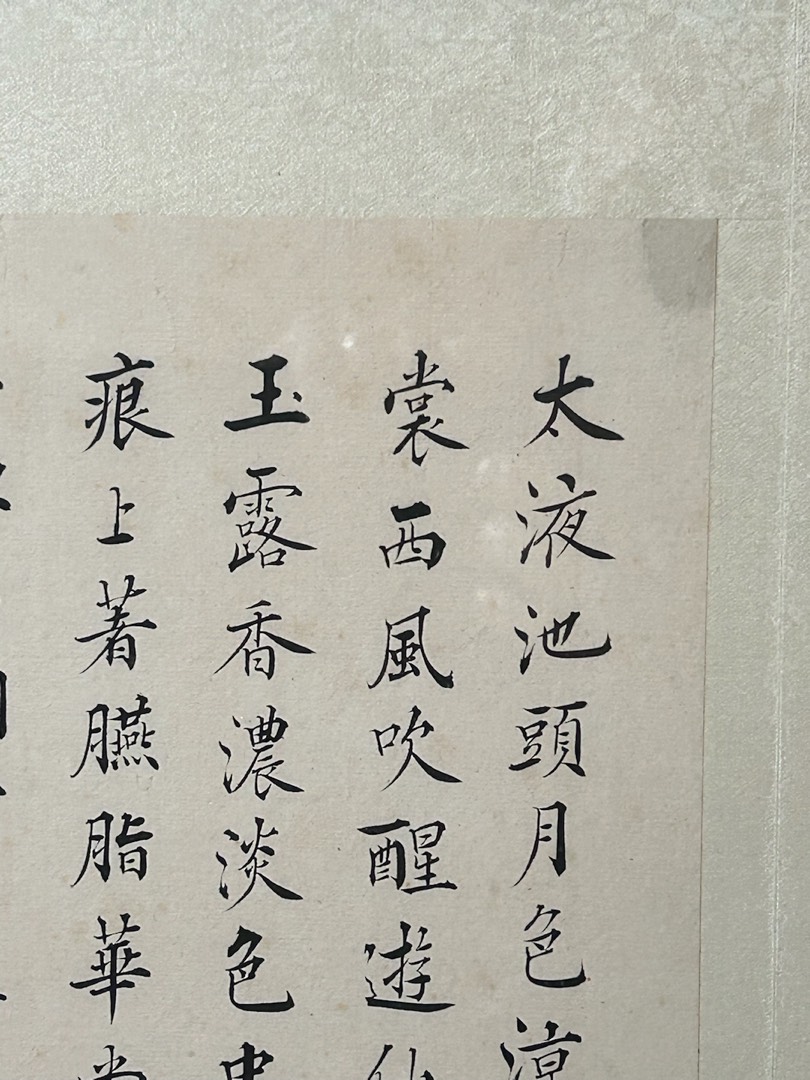 太液池頭月色涼
裳西風吹醒遊仙
玉露香濃淡色
痕上著臙脂華